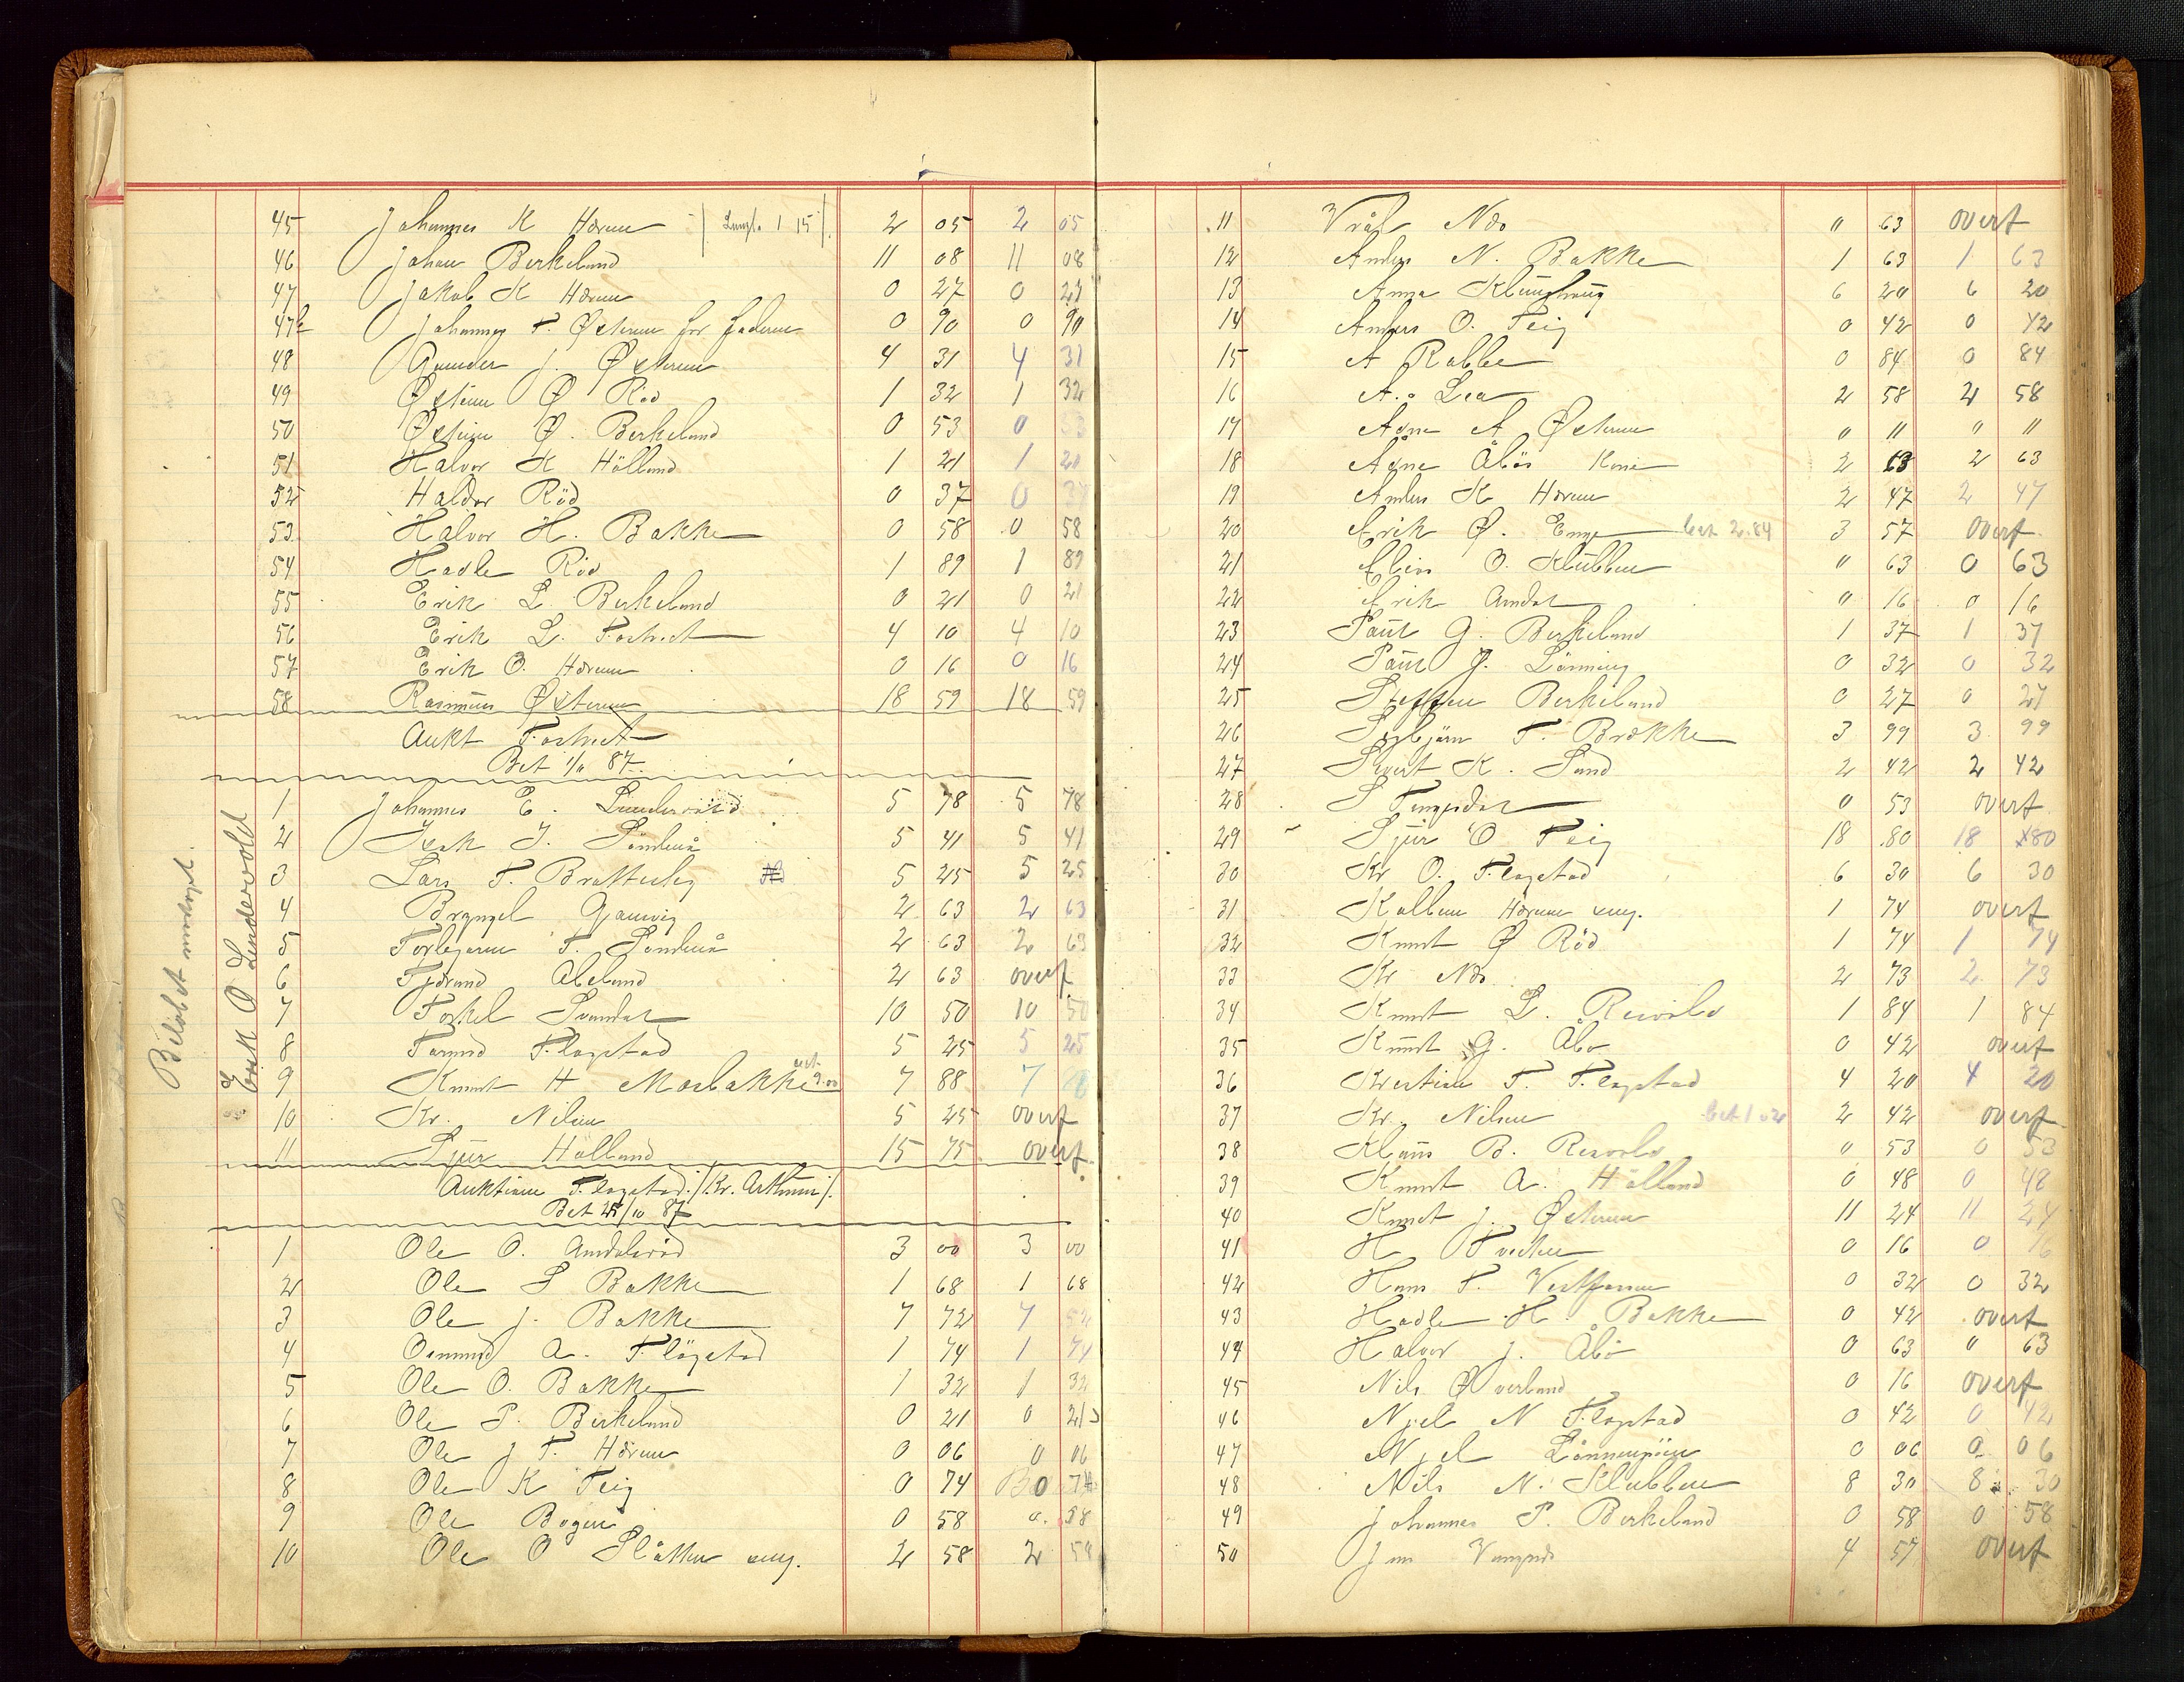 45 Johannes K Hærum /: Lensm. 1 15 :/ 2 05 2 05
46 Johan Berkeland 11 08 11 08
47 Jakob K Hærum 0 27 0 27
47b Johannes T. Østrem for faderen 0 90 0 90
48 Gunder J. Østrem 4 31 4 31
49 Østein Ø Röd 1 32 1 32
50 Østein Ø. Berkeland 0 53 0 53
51 Halvor K Hölland 1 21 1 21
52 Haldor Röd 0 37 0 37
53 Halvor H. Bakke 0 58 0 58
54 Hadle Röd 1 89 1 89
55 Erik L. Berkeland 0 21 0 21
56 Erik L. Fostveit 4 10 4 10
57 Erik O. Hærum 0 16 0 16
58 Rasmus Østrem 18 59 18 59
Aukt Fostveit
Bet 1/11 87.
Beløbet modtaget.
Erik O Lundervold
1 Johannes E. Lundervold 5 78 5 78
2 Isak J. Söndenå 5 41 5 41
3 Lars T. Brattebø 5 25 5 25
4 Bryngel Gauvig 2 63 2 63
5 Torbjørn T. Söndenå 2 63 2 63
6 Tjerand Abeland 2 63 overf.
7 Torkel Svendal 10 50 10 50
8 Tormod Flogstad 5 25 5 25
9 Knut H Mosbakke 9.00 7 88 7
10 Kr. Nilsen 5 25 overf
11 Sjur Hölland 15 75 overf.
Auktionen Flogstad /:Kr. Ask:/.
Bet 25/10 87
1 Ole O. Amdalsröd 3 00 3 00
2 Ole S Bakke 1 68 1 68
3 Ole J. Bakke 7 72 7 52
4 Osmund A. Flögstad 1 74 1 74
5 Ole O. Bakke 1 32 1 32
6 Ole P. Berkeland 0 21 0 21
7 Ole J T. Hærum 0 06 0 06
8 Ole K Teig 0 74 0 74
9 Ole Bogen 0 58 0. 58
10 Ole O Slåtten ung. 2 58 2 58
11 Vrål Næs " 63 overf
12 Anders N. Bakke 1 63 1 63
13 Anna Klungtveit 6 20 6 20
14 Anders O. Teig 0 42 0 42
15 A Rabbe 0 84 0 84
16 A. Lea 2 58 2 58
17 Asne A Østrem 0 11 " 11
18 Asne Åbös Kone 2 63 2 63
19 Anders K Hærum 2 47 2 47
20 Erik Ø. Enge bet 2.84 3 57 overf.
21 Elias O. Klubben " 63 0 63
22 Erik Amdal " 16 0 16
23 Paul G. Berkeland 1 37 1 37
24 Paul J. Lönning 0 32 0 32
25 Steffen Berkeland 0 27 0 27
26 Torbjörn T. Brække 3 99 3 99
27 Sivert K. Sand 2 42 2 42
28 S Tengesdal 0 53 overf.
29 Sjur O Teig 18 80 18 80
30 Kr O. Flogstad 6 30 6 30
31 Kolben Hærum ung. 1 74 overf
32 Knut Ø Röd 1 74 1 74
33 Kr Næs 2 73 2 73
34 Knut L. Risvold 1 84 1 84
35 Knut G. Åbö 0 42 overf
36 Kristian T. Flogstad 4 20 4 20
37 Kr. Nilsen bet 1 02 2 42 overf.
38 Klaus B. Risvold " 53 0 53
39 Knut A. Hölland 0 48 0 48
40 Knut J. Østrem 11 24 11 24
41 H Tveiten 0 16 0 16
42 Hans T. 0 32 0 32
43 Hadle H. Bakke 0 42 overf
44 Halvor J. Åbö 0 63 " 63
45 Nils Øverland 0 16 overf
46 Njel N Flogstad 0 42 0 42
47 Njel 0 06 0 06
48 Nils N. Klubben 8 30 8 30
49 Johannes P. Berkeland 0 58 0 58
50 4 57 overf